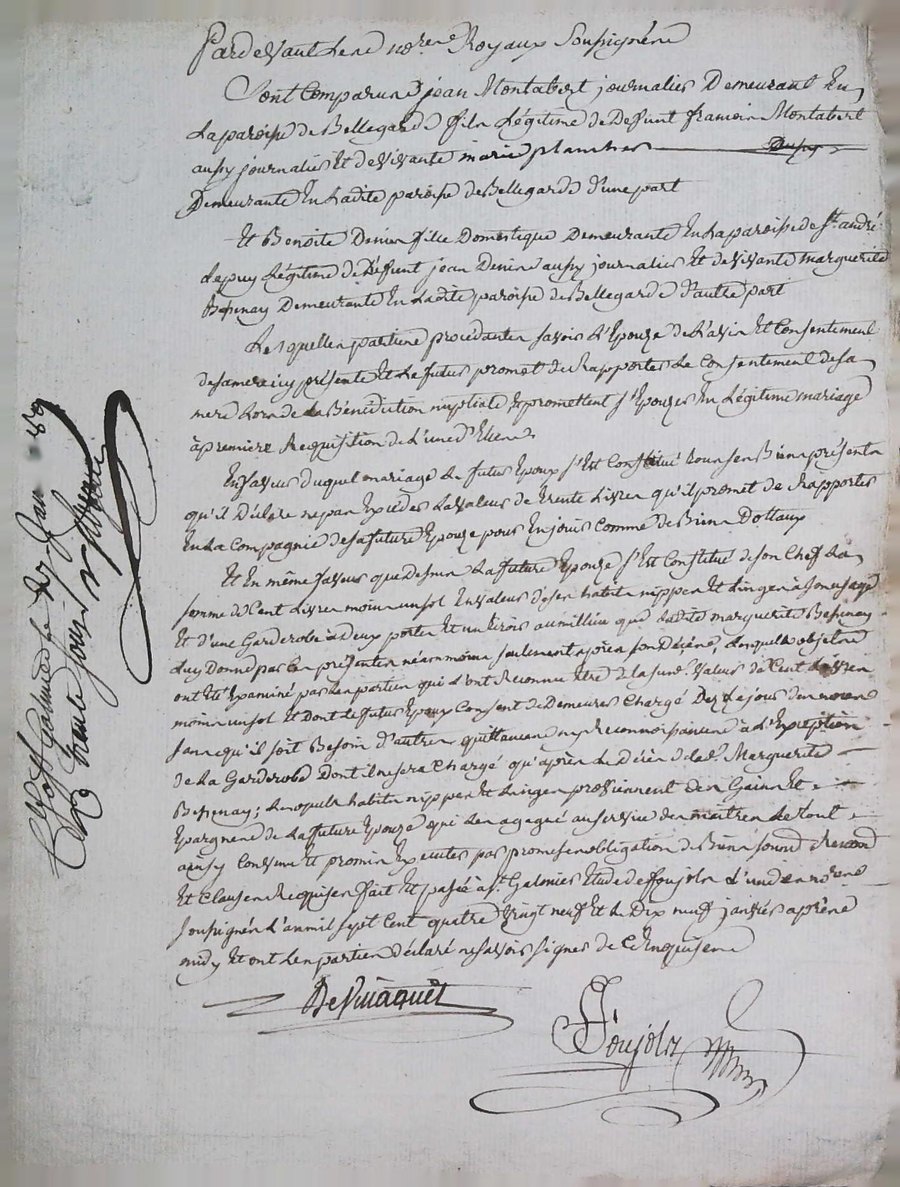 Pardevant Les no.res Royaux Soussignés
Sont Comparuns jean Montabert journalier Demeurant En
La paroisse de Bellegarde fils Légitime de Defunt francois Montabert
aussy journalier Et de Vivante marie planches
Demeurante En Ladite paroisse de Bellegarde d'une part
Et Benoite Denis fille Domestique Demeurante En La paroisse de St. andré
Lepuy Légitime de Défunt jean Denis aussy journalier Et de Vivante marguerite
Bessenay Demeurante En Ladite paroisse de Bellegarde d'autre part
Lesquelles parties procédantes savoir L'Epouze de L'avis Et Consentement
de sa mere icy présente Et Le futur promet de Rapporter Le Consentement de sa
mere Lors de La Bénédiction nuptiale Ont promettent s'Epouzer En Légitime mariage
à premiere Requisition de L'une d'Elles
En faveur duquel mariage Le futur Epoux s'Est Constitué tous ses Biens présents
qu'il Déclare ne pas Excéder La Valeur de trente Livres qu'il promet de Rapporter
En La Compagnie de sa future Epouze pour En jouir Comme de Biens Dottaux
Et En même faveur que dessus La future Epouze s'Est Constitué de son Chef La
somme de Cent Livres moins un sol En Valeur de ses habits nippes Et Linges à son usage
Et d'une Garderobe à deux portes Et un tirois au millieu que Ladite marguerite Bessenay
Luy Donne par Ces présentes néanmoins seulement après son Décès, Lesquels objets
ont Eté Examiné par Les parties qui L'ont Reconnu Etre de La susd. Valeur de Cent Livres
moins un sol Et Dont Le futur Epoux Consent de Demeurer Chargé Des Le jour des noces
sans qu'il soit Besoin d'autres quittances ny Reconnoissance à L'Exception
de La Garderobe Dont il ne sera Chargé qu'après Le Décès de Lad. Marguerite
Bessenay; Lesquels habits nippes Et Linges proviennent des Gains Et
Epargnes de La future Epouze qui Les a gagné au service des maitres Le tout
ainsy Convenu Et promis Executer par promesses obligation de Biens soumis Renond
Et Clauses Requises fait Et passé à St. Galmier Etude de foujols L'un des no.res
soussignés L'an mil sept Cent quatre Vingt neuf Et Le Dix neuf janvier après
midy Et ont Les parties Déclaré ne savoir signer de Ce Enquises
DeVinaquet
Foujols
St Galmier Le Jan 89
trente sous